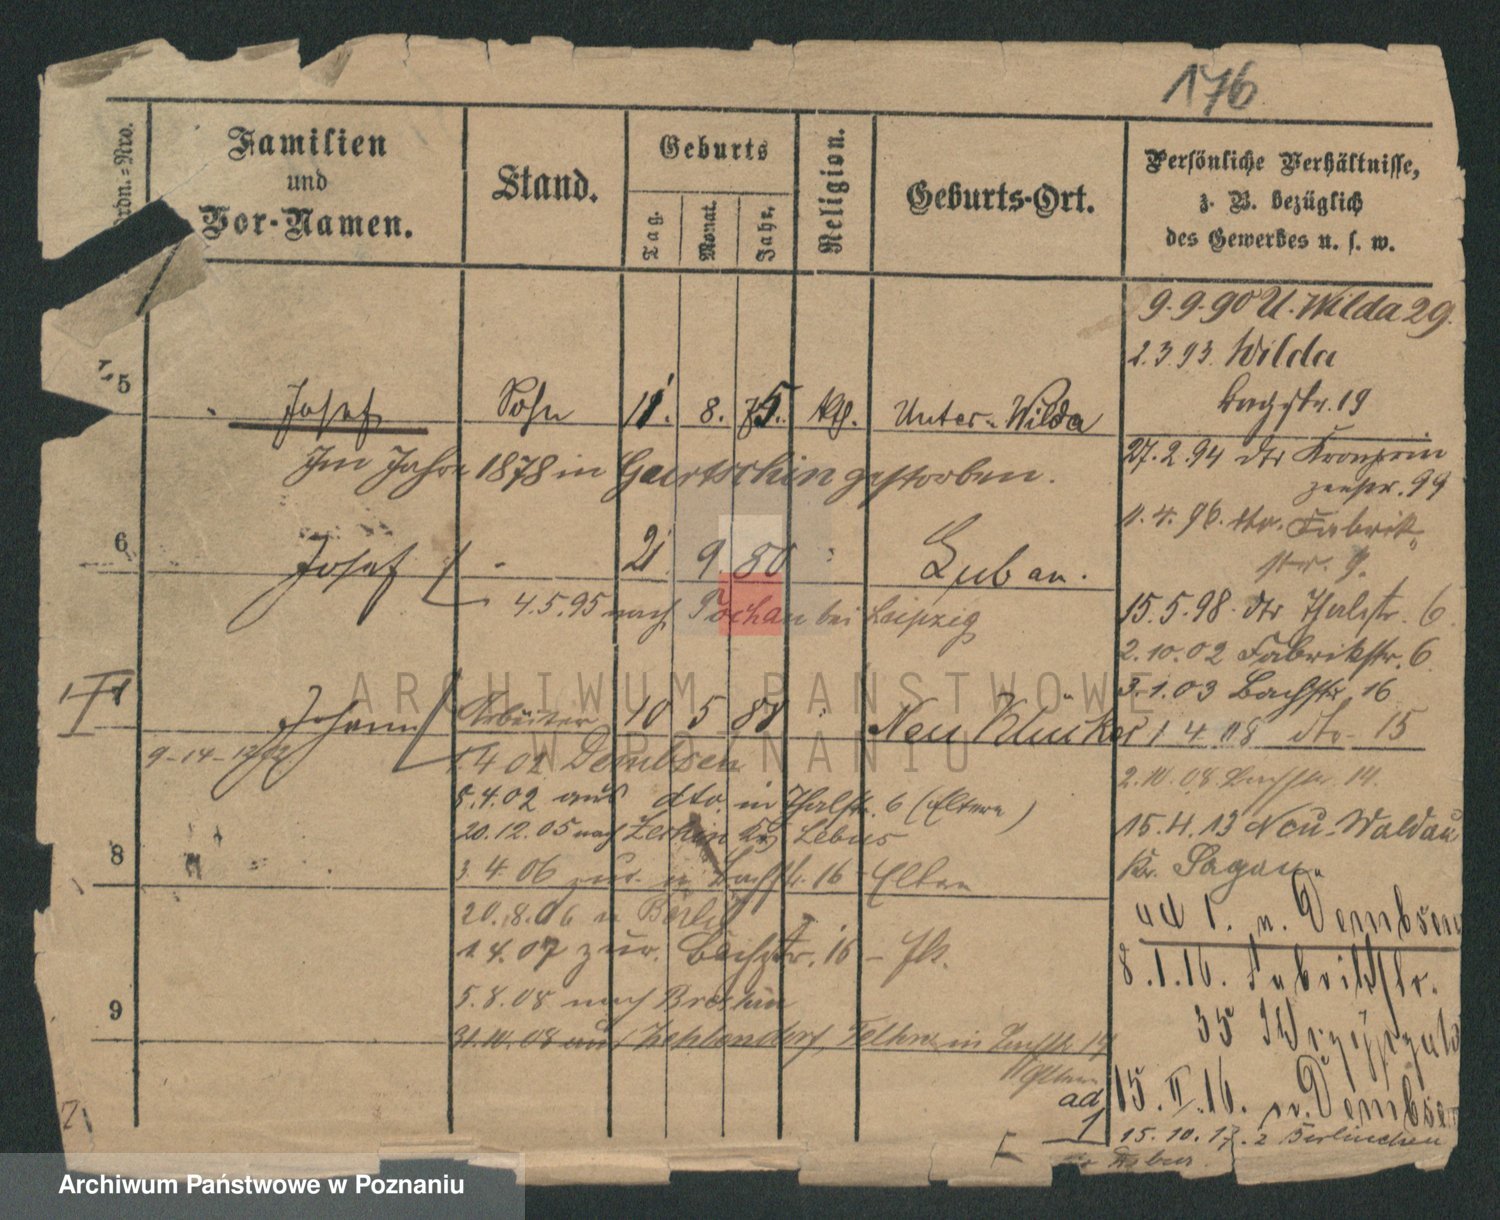 176
Ordn.=Nro.
Familien
und
Vor-Namen.
Stand.
Geburts
Tag.
Monat.
Jahr.
Religion.
Geburts-Ort.
Persönliche Verhältnisse,
z. B. bezüglich
des Gewerbes u. s. w.
9.9.90 U. Wilda 29.
2.3.93. Wilda
Bachstr. 19
5
Josef
Sohn
11. 8. 75. kth. Unter-Wilda
Im Jahre 1878 in Gurtschin gestorben.
27.2.94 dto Kronprin
zenstr. 99
1.4.96. dto. Fabrik
str. 9.
6
Josef
21 9 80
Luban.
4.5.95 nach Tochau bei Leipzig
15.5.98. dto Thalstr. 6.
2.10.02 Fabrikstr. 6.
3.1.03 Bachstr. 16
Johann
Arbeiter
10 5 88
Neu
1.4.08 dto 15
1.4.02 Dembsen
2.10.08. Bachstr. 14.
5.4.02 aus dto. in Thalstr. 6 (Eltern)
20.12.05 nach Lebus
15.4.13 Neu-Waldau
Kr. Sagan
8
3.4.06 zur. in Bachstr. 16 - Eltern
20.8.06 n Berlin
1.4.07 zur. Bachstr. 16 -
ad 1. n. Dembsen
8.1.16. Fabrikstr.
35
5.8.08 nach
9
31.10.08 aus Zehlendorf, in 14
Eltern
ad
1
15.II.16. n. Dembsen
15.10.17. Berlinchen
ARCHIWUM PAŃSTWOWE
W POZNANIU
Archiwum Państwowe w Poznaniu